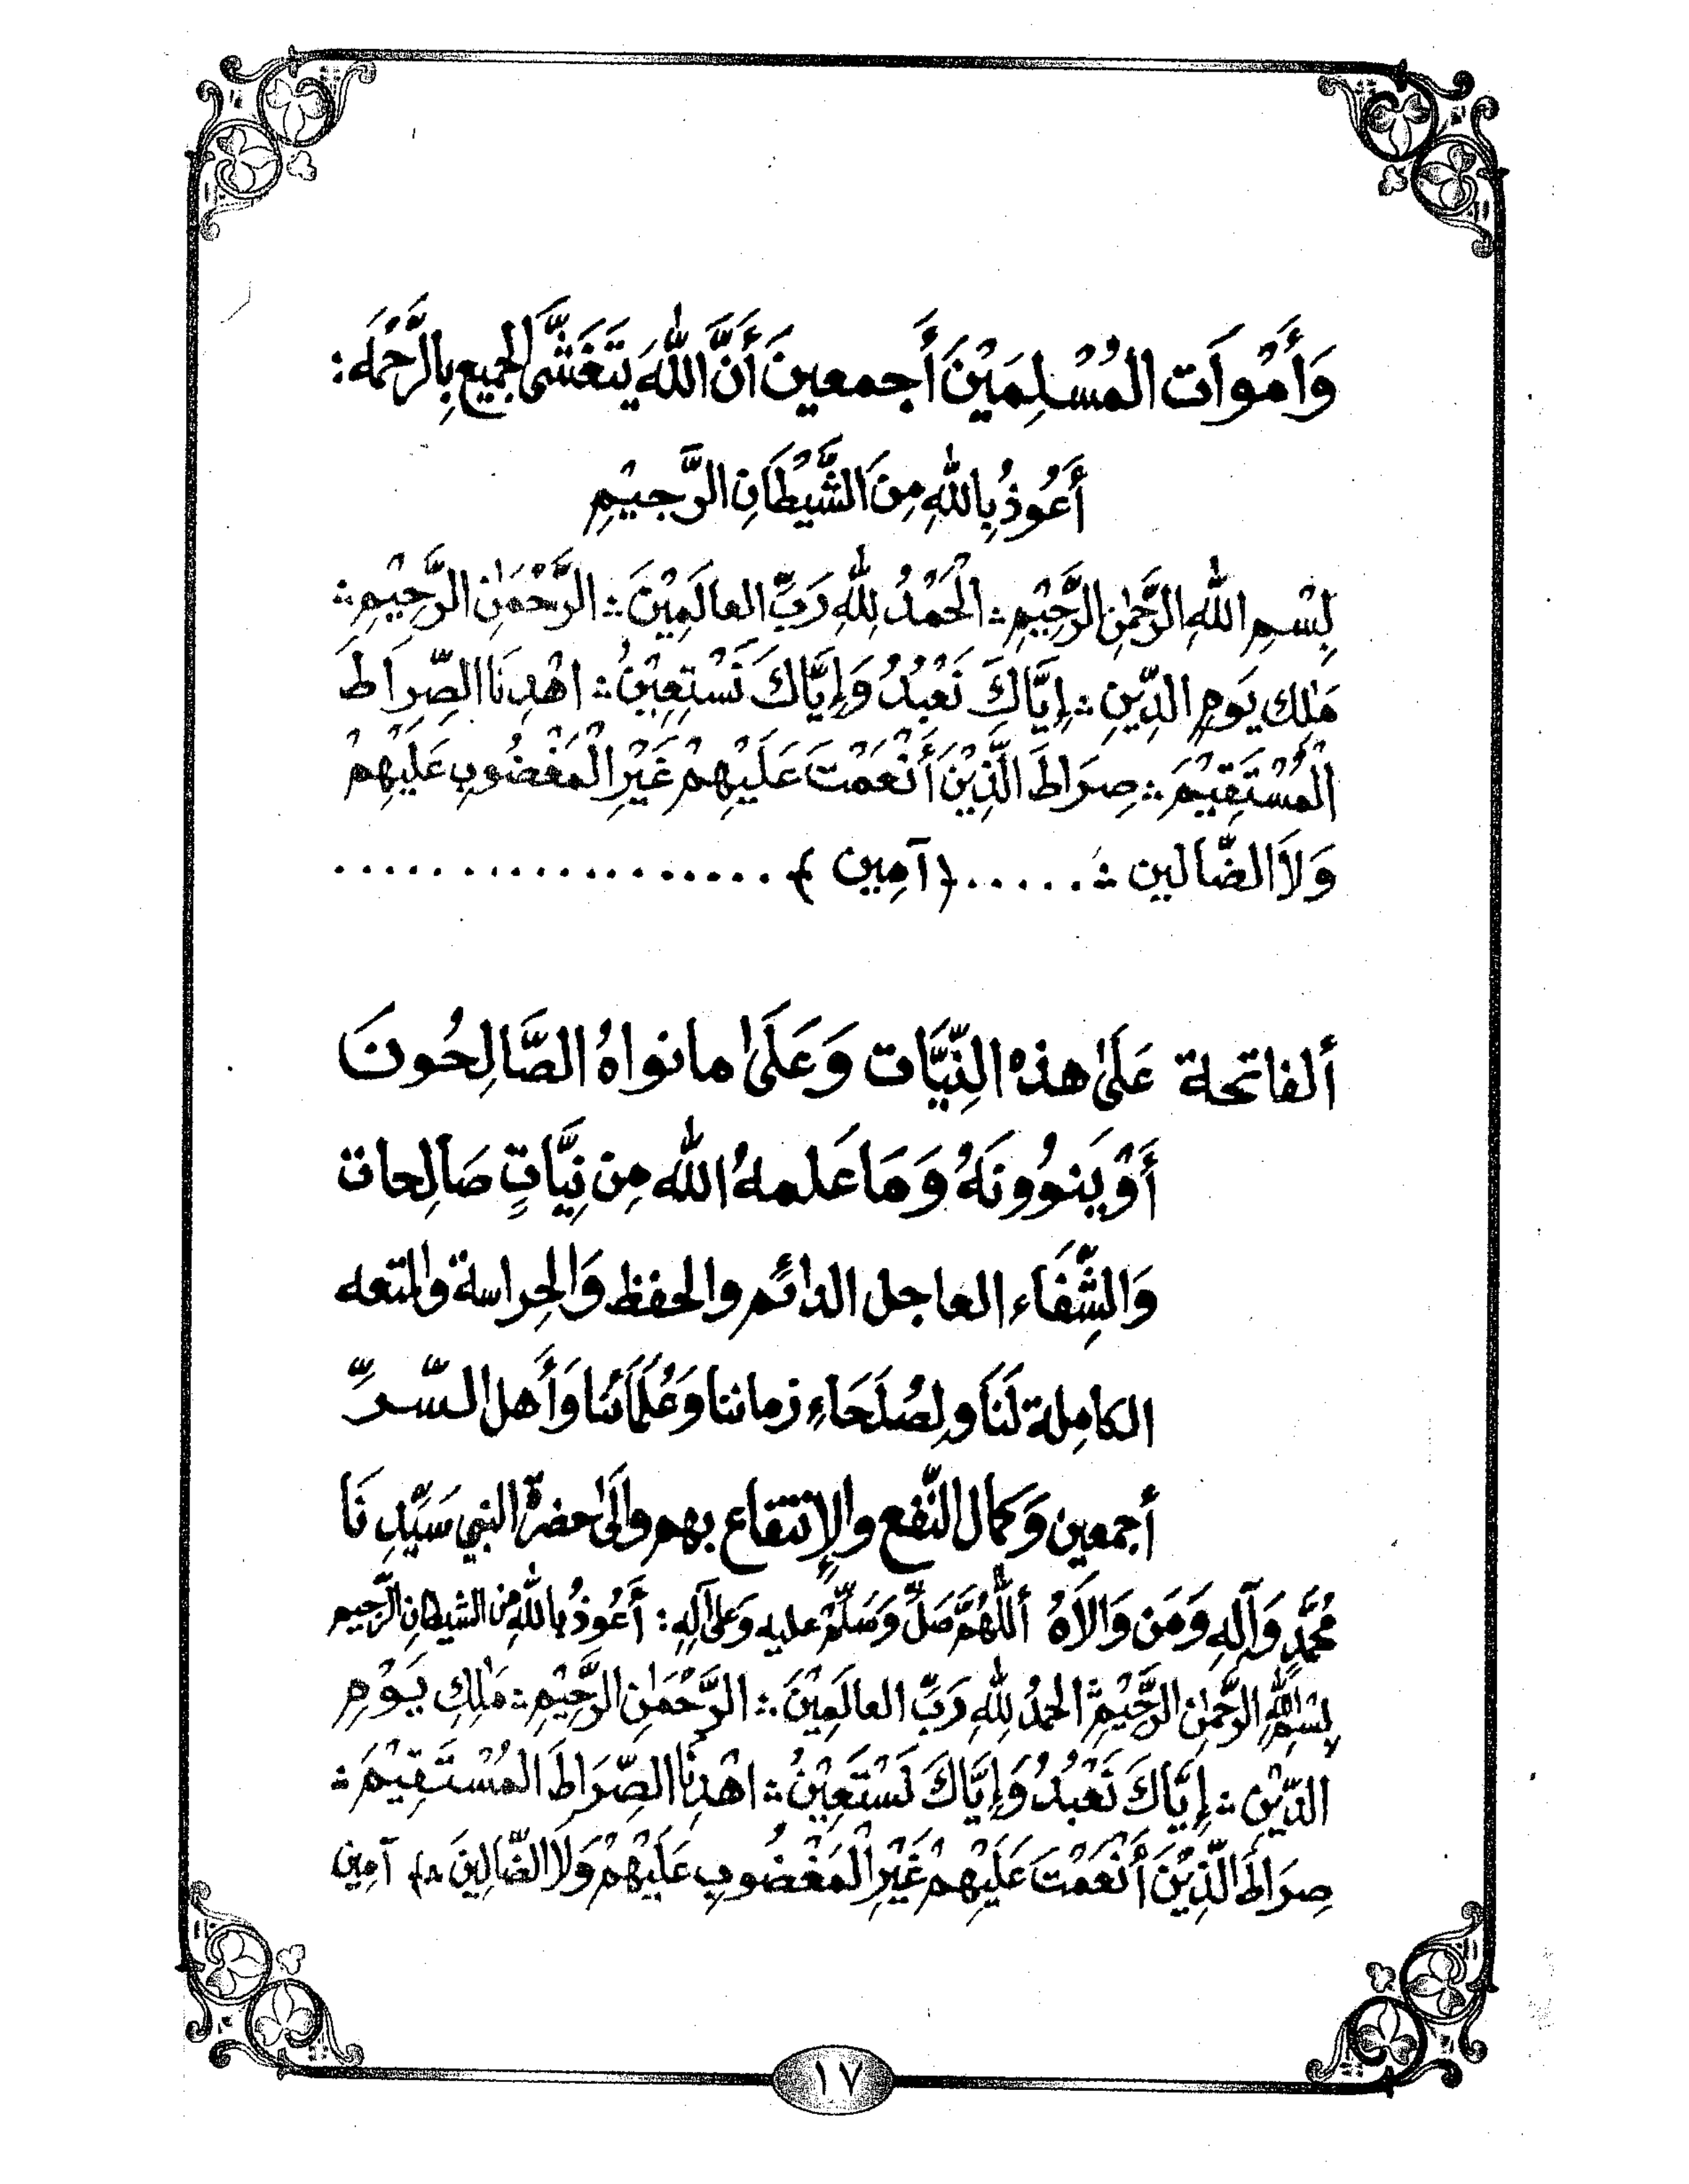 وَأَمْوَات المُسْلِمَيْنَ أَجمعينَ أَنَّ اللهَ يَتَغَشَّى الجميع بِالرَّحْمَه :
أَعُوذُ بِاللهِ مِنَ الشَّيْطَانِ الرَّجِيْمِ
بِسْمِ اللهِ الرَّحْمٰنِ الرَّحِيْمِ ∴ الْحَمْدُ لِلّٰهِ رَبِّ العالَمِيْنَ ∴ الرَّحْمٰنِ الرَّحِيْمِ ∴
مَٰلِك يَومِ الدِّينِ ∴ إِيَّاكَ نَعْبُدُ وَإِيَّاكَ نَسْتَعِيْنُ ∴ اهْدِنَا الصِّرَاطَ
الْمُسْتَقِيْمَ ∴ صِرَاطَ الَّذِيْنَ أَنْعَمْتَ عَلَيْهِمْ غَيْرِ الْمَغْضُوبِ عَلَيْهِمْ
وَلَا الضَّالين ∴ ..... ﴿آمِين﴾ ...................
ألفاتحة عَلَىٰ هذهْ النِّيَّات وَعَلَىٰ مانواهُ الصَّالِحُونَ
أَوْ يَنوُونَهُ وَمَا عَلمهُ الله مِن نِيَّاتٍ صَالِحات
وَالشِّفَاء العاجل الدائم والحفظ وَالحِراسة والمتعه
الكامِلة لَنَا ولِصُلَحَاءِ زماننا وَعُلَمَائنا وَأَهل السِّرِّ
أجمعين وَكمال النَّفع والإنتفاع بهم والَىٰ حضرة النبي سَيِّدِنَا
مُحَمَّدٍ وَآلِهِ وَمَن وَالَاهُ أَللّٰهُمَّ صَلِّ وَسَلِّمْ عليه وَعلىٰ آلِهِ : أَعُوذُ بالله من الشيطانِ الرَّجيم
بِسْمِ اللهِ الرَّحْمٰنِ الرَّحِيْمِ ∴ الحمدُ لِلّٰهِ رَبِّ العالَمِيْنَ ∴ الرَّحْمَٰنِ الرَّحِيْمِ ∴ مَٰلِكِ يَوْمِ
الدِّيْنِ ∴ إِيَّاكَ نَعْبُدُ وَإِيَّاكَ نَسْتَعِيْنُ ∴ اهْدِنَا الصِّرَاطَ المُسْتَقِيْمَ ∴
صِرَاطَ الَّذِيْنَ أَنْعَمْتَ عَلَيْهِمْ غَيْرِ الْمَغْضُوبِ عَلَيْهِمْ وَلَا الضَّالِينَ ∴﴾ آمِين
١٧